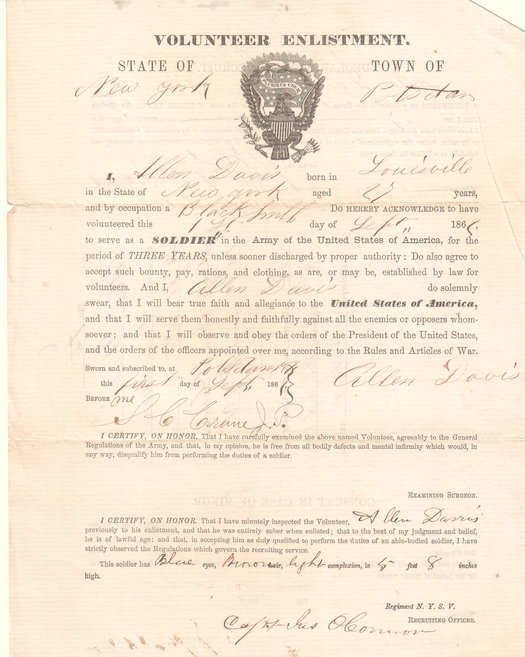 VOLUNTEER ENLISTMENT.
STATE OF TOWN OF
New York Potsdam
I, Allen Davis born in Louisville
in the State of New York aged years,
and by occupation a Black Smith DO HEREBY ACKNOWLEDGE to have
volunteered this first day of Sept., 186
to serve as a SOLDIER in the Army of the United States of America, for the
period of THREE YEARS, unless sooner discharged by proper authority: Do also agree to
accept such bounty, pay, rations, and clothing, as are, or may be, established by law for
volunteers. And I, Allen Davis do solemnly
swear, that I will bear true faith and allegiance to the United States of America,
and that I will serve them honestly and faithfully against all the enemies or opposers whom-
soever; and that I will observe and obey the orders of the President of the United States,
and the orders of the officers appointed over me, according to the Rules and Articles of War.
Sworn and subscribed to, at Potsdam
this first day of Sept 186 Allen Davis
BEFORE me
S C Crane J. P.
I CERTIFY, ON HONOR, That I have carefully examined the above named Volunteer, agreeably to the General
Regulations of the Army, and that, in my opinion, he is free from all bodily defects and mental infirmity which would, in
any way, disqualify him from performing the duties of a soldier.
EXAMINING SURGEON.
I CERTIFY, ON HONOR, That I have minutely inspected the Volunteer, Allen Davis
previously to his enlistment, and that he was entirely sober when enlisted; that to the best of my judgment and belief,
he is of lawful age: and that, in accepting him as duly qualified to perform the duties of an able-bodied soldier, I have
strictly observed the Regulations which govern the recruiting service.
This soldier has Blue eyes, Brown hair, light complexion, is 5 feet 8 inches
high.
Regiment N. Y. S. V.
RECRUITING OFFICER.
Capt Jas O Connor